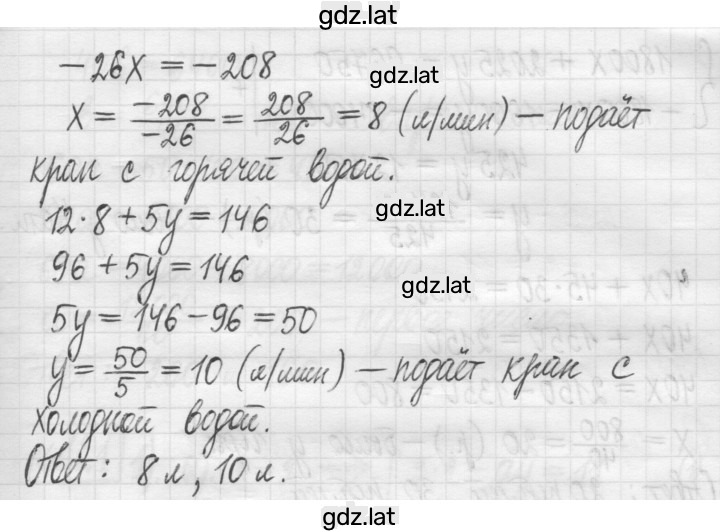 gdz.lat
−26x = −208
gdz.lat
x = −208/−26 = 208/26 = 8 (л/мин) — подаёт
кран с горячей водой.
12·8 + 5y = 146
gdz.lat
96 + 5y = 146
gdz.lat
5y = 146 − 96 = 50
y = 50/5 = 10 (л/мин) — подаёт кран с
холодной водой.
Ответ: 8 л, 10 л.
gdz.lat